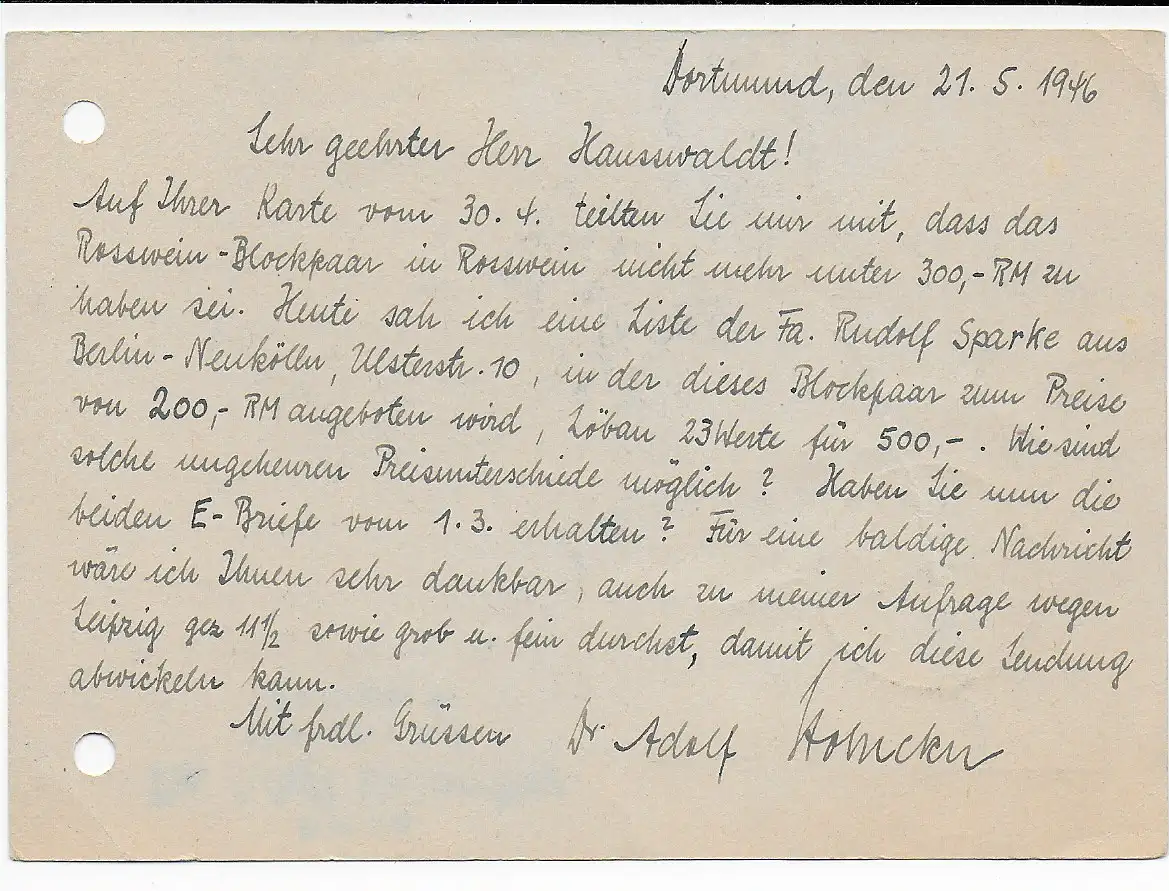 Dortmund, den 21. 5. 1946
Sehr geehrter Herr Hausswaldt!
Auf Ihrer Karte vom 30. 4. teilten Sie mir mit, dass das
Rosswein-Blockpaar in Rosswein nicht mehr unter 300,- RM zu
haben sei. Heute sah ich eine Liste der Fa. Rudolf Sparke aus
Berlin-Neukölln, Ulsterstr. 10, in der dieses Blockpaar zum Preise
von 200,- RM angeboten wird, Löbau 23 Werte für 500,-. Wie sind
solche ungeheuren Preisunterschiede möglich? Haben Sie nun die
beiden E-Briefe vom 1. 3. erhalten? Für eine baldige Nachricht
wäre ich Ihnen sehr dankbar, auch zu meiner Anfrage wegen
Leipzig gez 11½ sowie grob u. fein durchst, damit ich diese Sendung
abwickeln kann.
Mit frdl. Grüssen Dr. Adolf